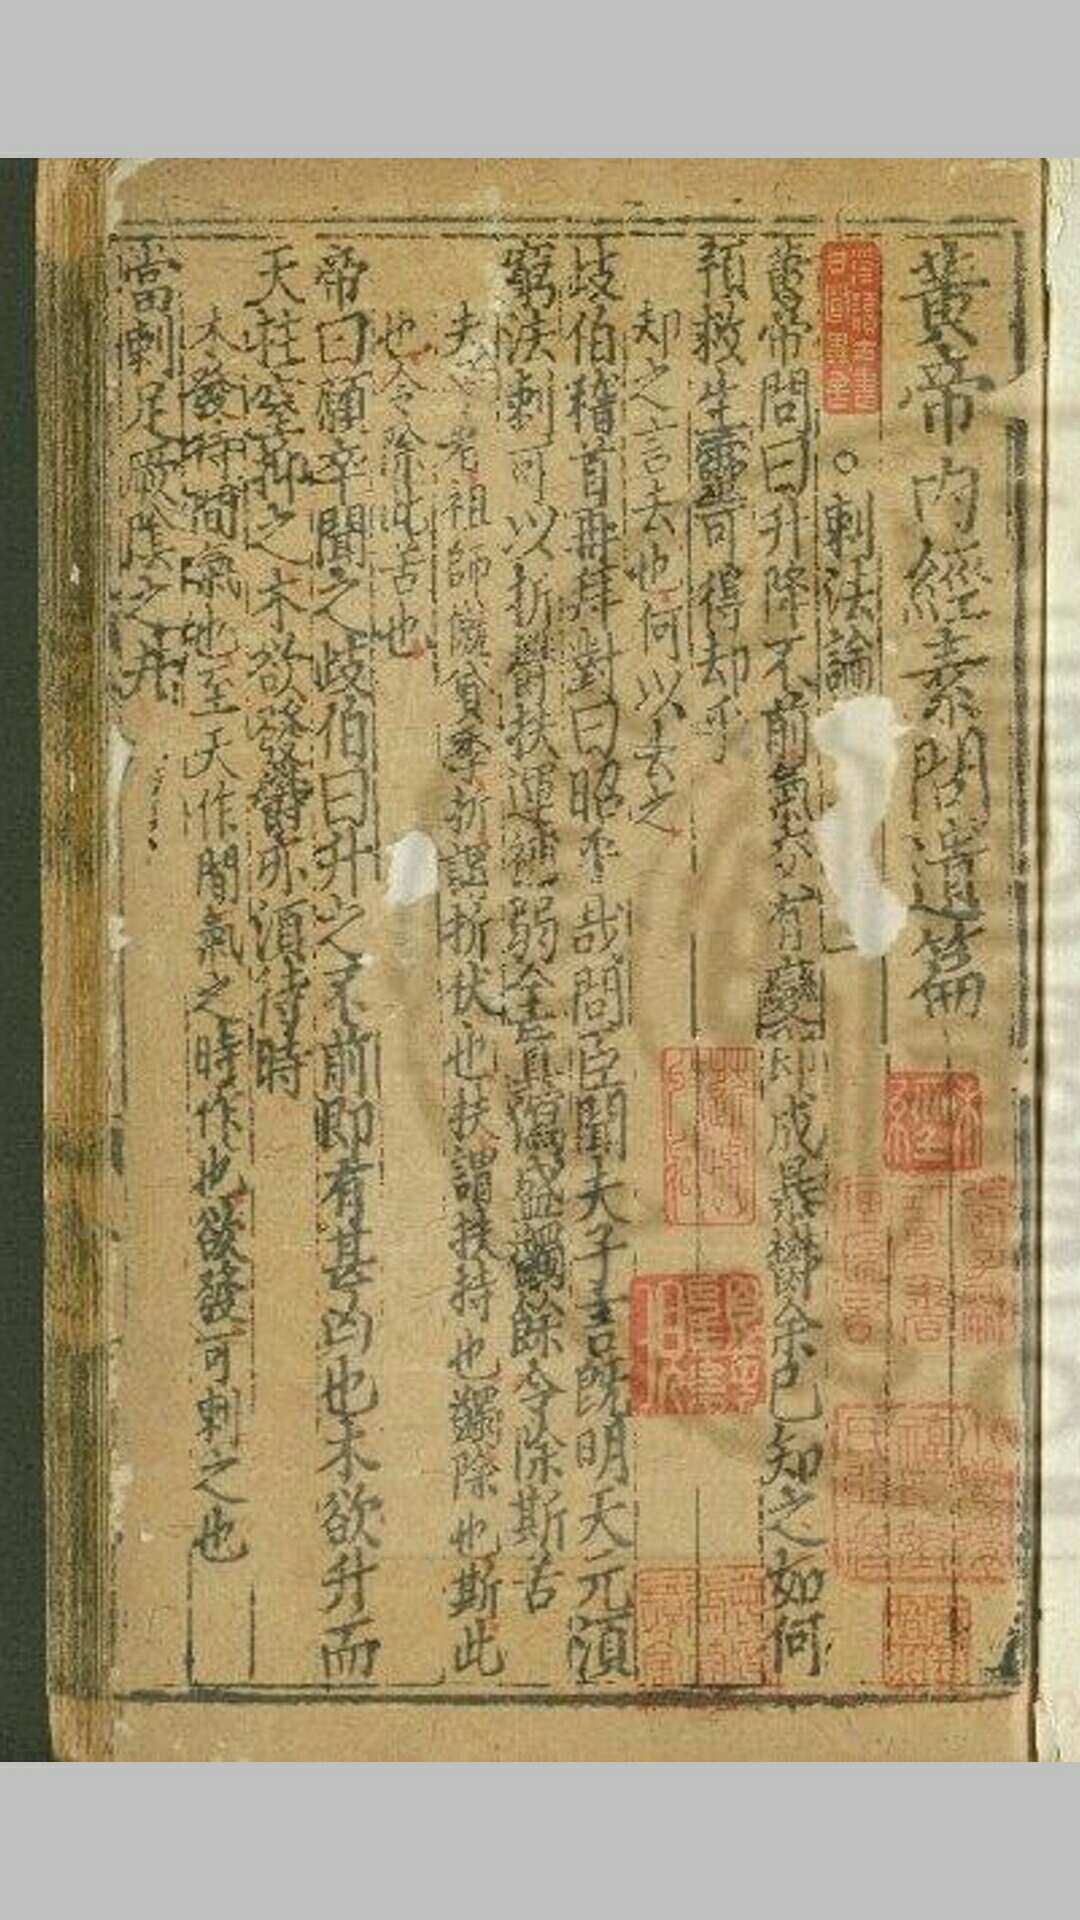 黃帝內經素問遺篇
○刺法論
黃帝問曰升降不前氣交有變即成暴鬱余已知之如何
預救生靈可得却乎
却之言去也何以去之
歧伯稽首再拜對曰昭乎哉問臣聞夫子言既明天元須
窮法刺可以折鬱扶運補弱全真瀉盛蠲餘令除斯苦
夫 老祖師 貸季 折謂折伏也扶謂扶持也蠲除也斯此
也令除此苦也
帝曰願卒聞之歧伯曰升之不前即有甚凶也木欲升而
天柱窒抑之木欲發鬱亦須待時
木發待間氣也至天作間氣之時作也欲發可刺之也
當刺足厥陰之井